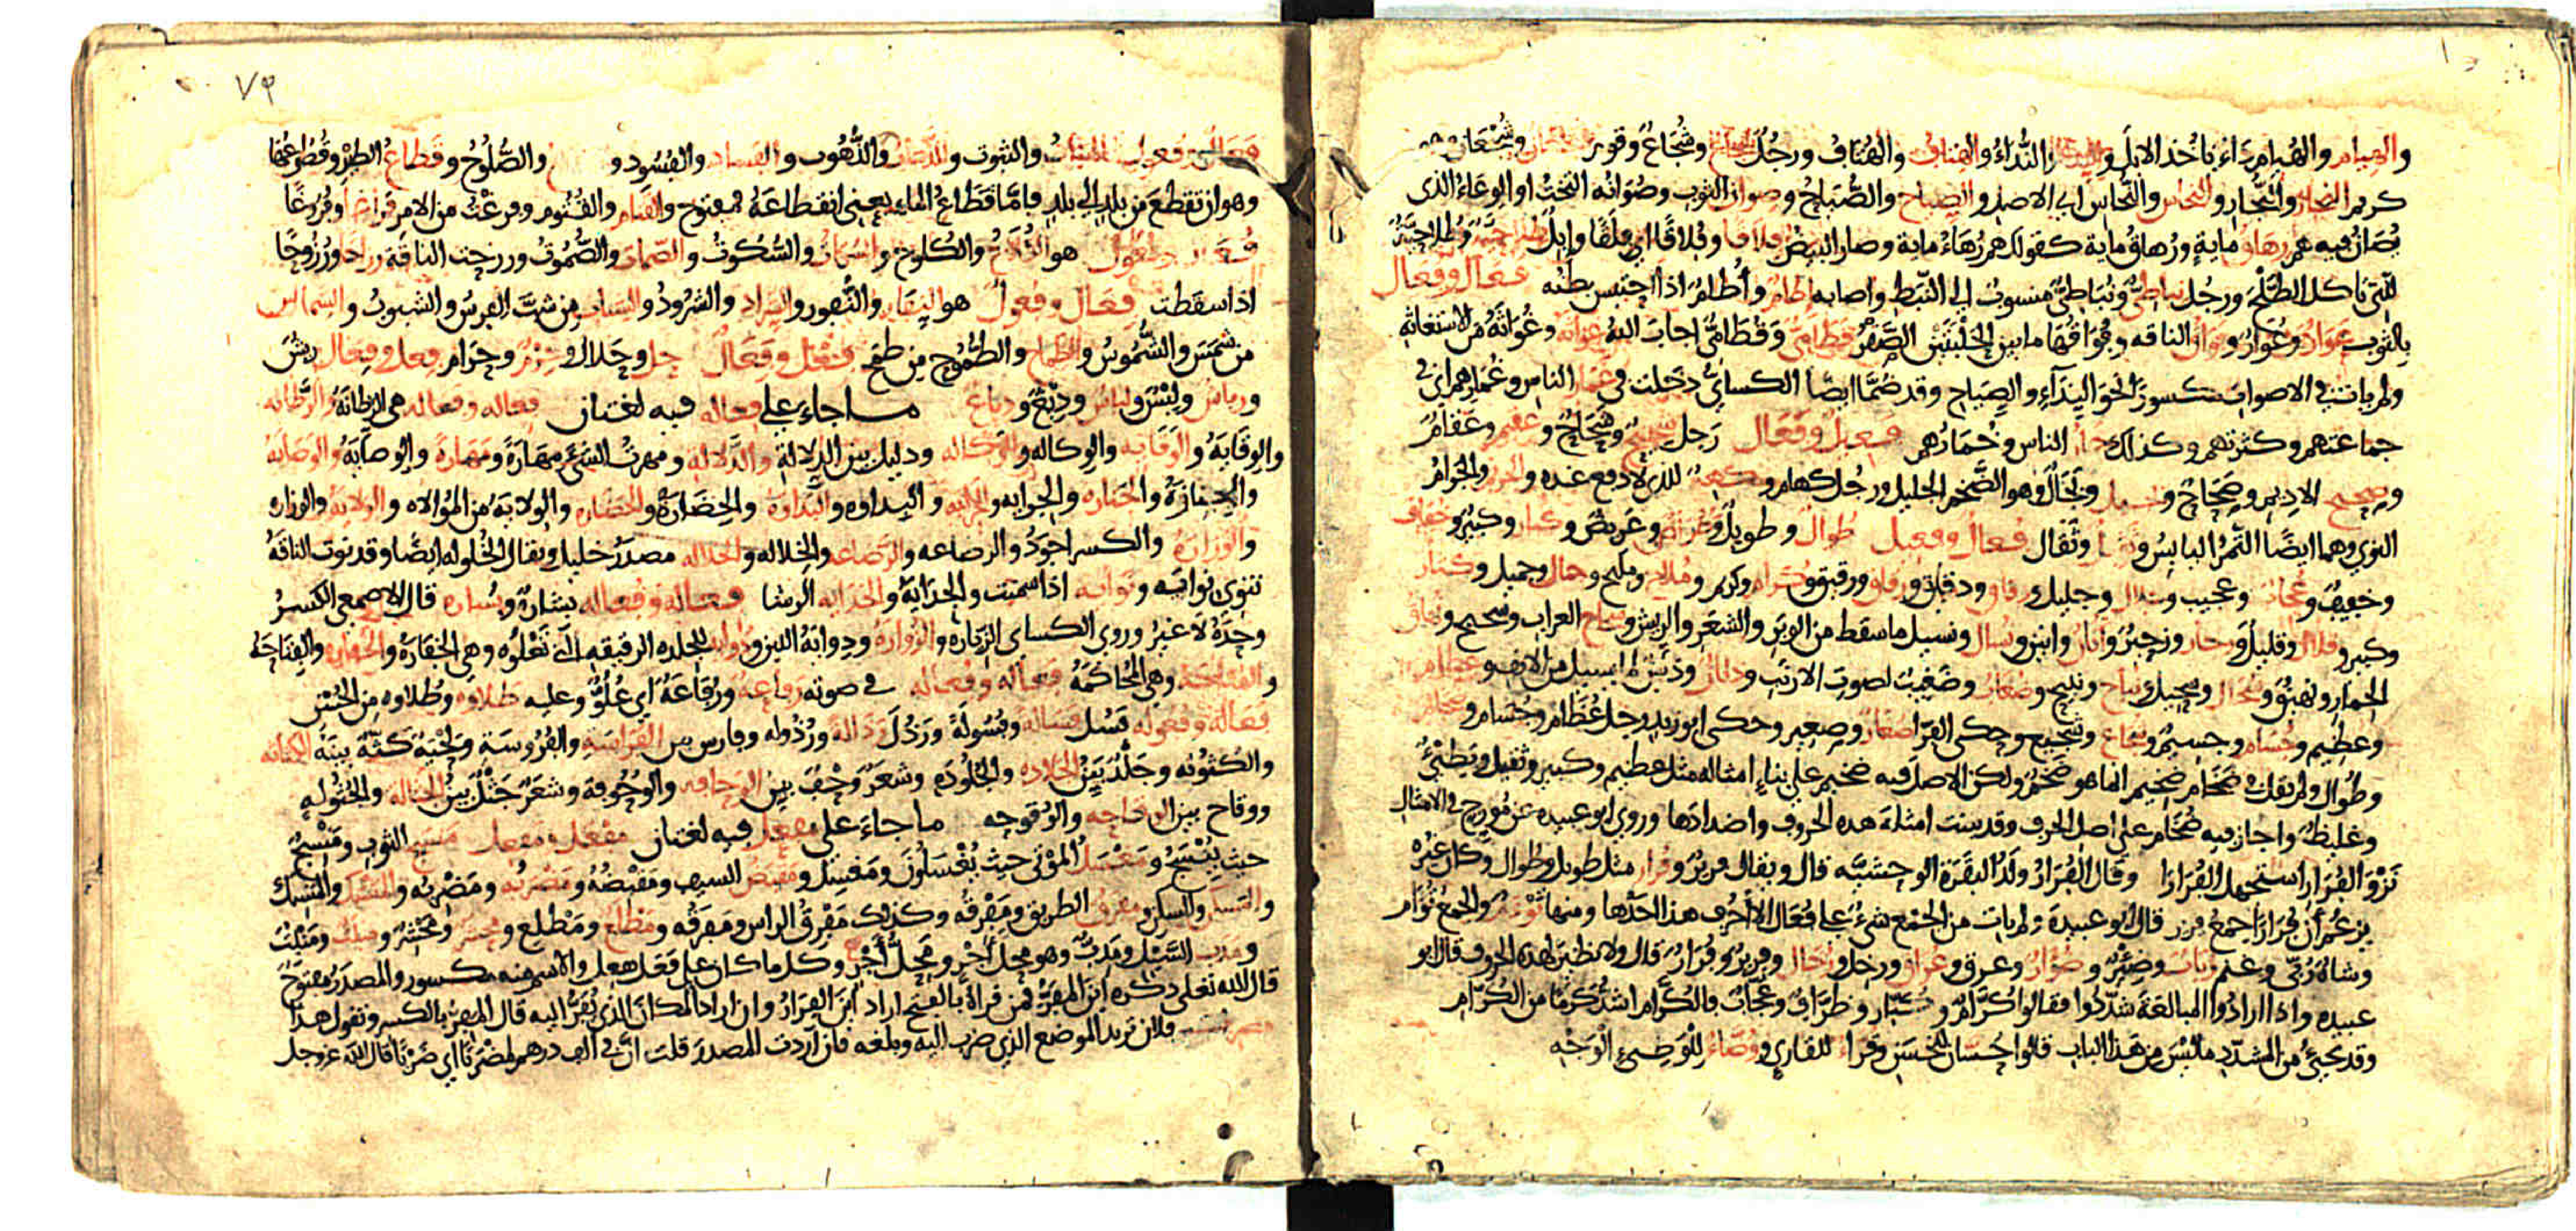 والهيام والهيام داء يأخذ الابل و النداء والهتاف والهتاف ورجل وشجاع وقوم وشجعان
كريم النجار والنجار والنحاس والنحاس اي الاصل والصياح والصياح وصوان الثوب وصوانه التخت او الوعاء الذى
يصان فيه هم زهاق ماية وزهاق ماية كقولك هم زهاء ماية وصار البيض فلاقا وفلاقا اي فلقا وابل طلاحية وطلاحية
للتي تاكل الطلح ورجل نباطي ونباطي منسوب الي النبط واصابه اطام وأطام اذا احتبس بطنه فعال وفعال
بالثوب عوار وعوار وفواق الناقه وفواقها ما بين الحلبتين الصقر قطامي وقطامي اجاب الله غواثه وغواثه من الاستغاثه
ولم يات في الاصوات مكسور نحو النداء والصياح وقد ضما ايضا الكسائي دخلت في غمار الناس وغمارهم اي في
جماعتهم وكثرتهم وكذلك خمار الناس وخمارهم فعيل وفعال رجل شحيح وشحاح وعقيم وعقام
وصحيح الاديم وصحاح وبجيل وبجال وهو الضخم الجليل ورجل كهام وكهيم للذي لا دفع عنده والجريم والجرام
النوي وهما ايضا التمر اليابس وثقيل وثقال فعال وفعيل طوال وطويل وعراض وعريض وكبار وكبير وخفاف
وخفيف وعجاب وعجيب وجلال وجليل ودقاق ودقيق ورقاق ورقيق وكرام وكريم وملاح ومليح وجمال وجميل وكثار
وكثير وقلال وقليل وزحار وزحير وأنان وانين ونسال ونسيل ما سقط من الوبر والشعر والريش وشحاج الغراب وشحيح ونهاق
الحمار ونهيق وسحال وسحيل ونباح ونبيح وضغاب وضغيب لصوت الارنب وذنان وذنين لما يسيل من الانف وعظام
وعظيم وجسام وجسيم وشجاع وشجيع وحكى الفرا صغار وصغير وحكى ابو زيد رجل عظام وجسام وضخام
وطوال ولم يقل في ضخام ضخيم انما هو ضخم ولكن الاصل فيه ضخيم علي بناء امثاله مثل عظيم وكبير وثقيل وبطيء
وغليظ واجاز فيه ضخام علي اصل الحرف وقد بينت امثلة هذه الحروف واضدادها وروي ابو عبيده عن مورج في الامثال
نزو الفرار استجهل الفرارا وقال الفرار ولد البقرة الوحشية قال ويقال فرير وفرار مثل طويل وطوال وكان غيره
يزعم أن فرارا جمع فرير قال ابو عبيدة ولم يات من الجمع شيء علي فعال الا أحرف هذا احدها ومنها توءم والجمع تؤام
وشاة ربي وغنم رباب وظئر وظؤار وعرق وعراق ورخل ورخال وفرير وفرار قال ولا نظير لهذه الحروف قال ابو
عبيده واذا ارادوا المبالغة شددوا فقالوا كرام وكبار وظراف وعجاب فالكرام اشد كرما من الكرام
وقد يجيء من المشدد ما ليس من هذا الباب قالوا حسان للحسن وقراء للقاري ووضاء للوضيء الوجه
٧٩
فعال وفعول الثبات والثبوت والذهاب والذهوب والفساد والفسود و والصلوح وقطاع الطير وقطوعها
وهو ان تقطع من بلد الي بلد فاما قطاع الماء يعني انقطاعه فمفتوح والقتام والقتوم وفرغت من الامر فراغا وفروغا
هو الكلاح والكلوح والسكات والسكوت والصمات والصموت ورزحت الناقة رزاحا ورزوحا
اذا سقطت فعال وفعول هو النفار والنفور والشراد والشرود والشباب من شب الفرس والشبوب والشماس
من شمس والشموس والطماح والطموح من طمح فعل وفعال حل وحلال وحرم وحرام فعل وفعال ريش
ورياش ولبس ولباس ودبغ ودباغ ما جاء علي فعاله فيه لغتان فعاله وفعاله هي الرطانة والرطانه
والوقاية والوقايه والوكاله والوكاله ودليل بين الدلالة والدلاله ومهرت الشيء مهارة ومهارة والوصاية والوصاية
والجنازة والجنازه والجرايه والجرايه والبداوه والبداوة والحضارة والحضاره والولاية من الموالاه والولاية والوزاره
والوزارة والكسر اجود والرضاعه والرضاعه والخلاله والخلاله مصدر خليل ويقال الخلوله ايضا وقد نوت الناقة
تنوي نوايه ونوايه اذا سمنت والجداية والجدايه الرشا فعاله وفعاله بشارة وبشاره قال الاصمعي الكسر
وحده لا غير وروي الكساي الزيارة والزوارة ودواية اللبن ودوايه للجلده الرقيقه التي تعلوه وهي الخفارة والخفاره والفتاحة
والفتاحة وهي المحاكمة فعاله وفعاله في صوته رفاعة ورفاعة أي علو وعليه طلاوة وطلاوه من الحسن
فعالة وفعوله فسل فسالة وفسولة ورذل رذالة ورذوله وفارس بين الفراسة والفروسة ولحية كثة بينة الكثاثه
والكثوثه وجلد بين الجلاده والجلوده وشعر وحف بين الوحافه والوحوفة وشعر جثل بين الجثاله والجثوله
ووقاح بين الوقاحه والوقوحه ما جاء علي مفعل فيه لغتان مفعل ومفعل منسج الثوب ومنسج
حيث ينسج ومغسل الموتى حيث يغسلون ومغسل ومقبض السيف ومقبضه ومضربه ومضربه والمنسك والمنسك
والمسكن والمسكن ومفرق الطريق ومفرقه وكذلك مفرق الراس ومفرقه ومطلع ومطلع ومحشر ومحشر ومنبت ومنبت
ومدب السيل ومدب وهو محل أخر ومحل أخر وكل ما كان علي فعل يفعل والاسم منه مكسور والمصدر مفتوح
قال الله تعلى ذكره أين المفر فمن قراه بالفتح اراد اين الفرار وان اراد المكان الذي يفر اليه قال المفر بالكسر وتقول هذا
مضرب فلان تريد الموضع الذي ضرب اليه وبلغه فان أردت المصدر قلت ان في الف درهم لمضربا اي ضربا قال الله عز وجل